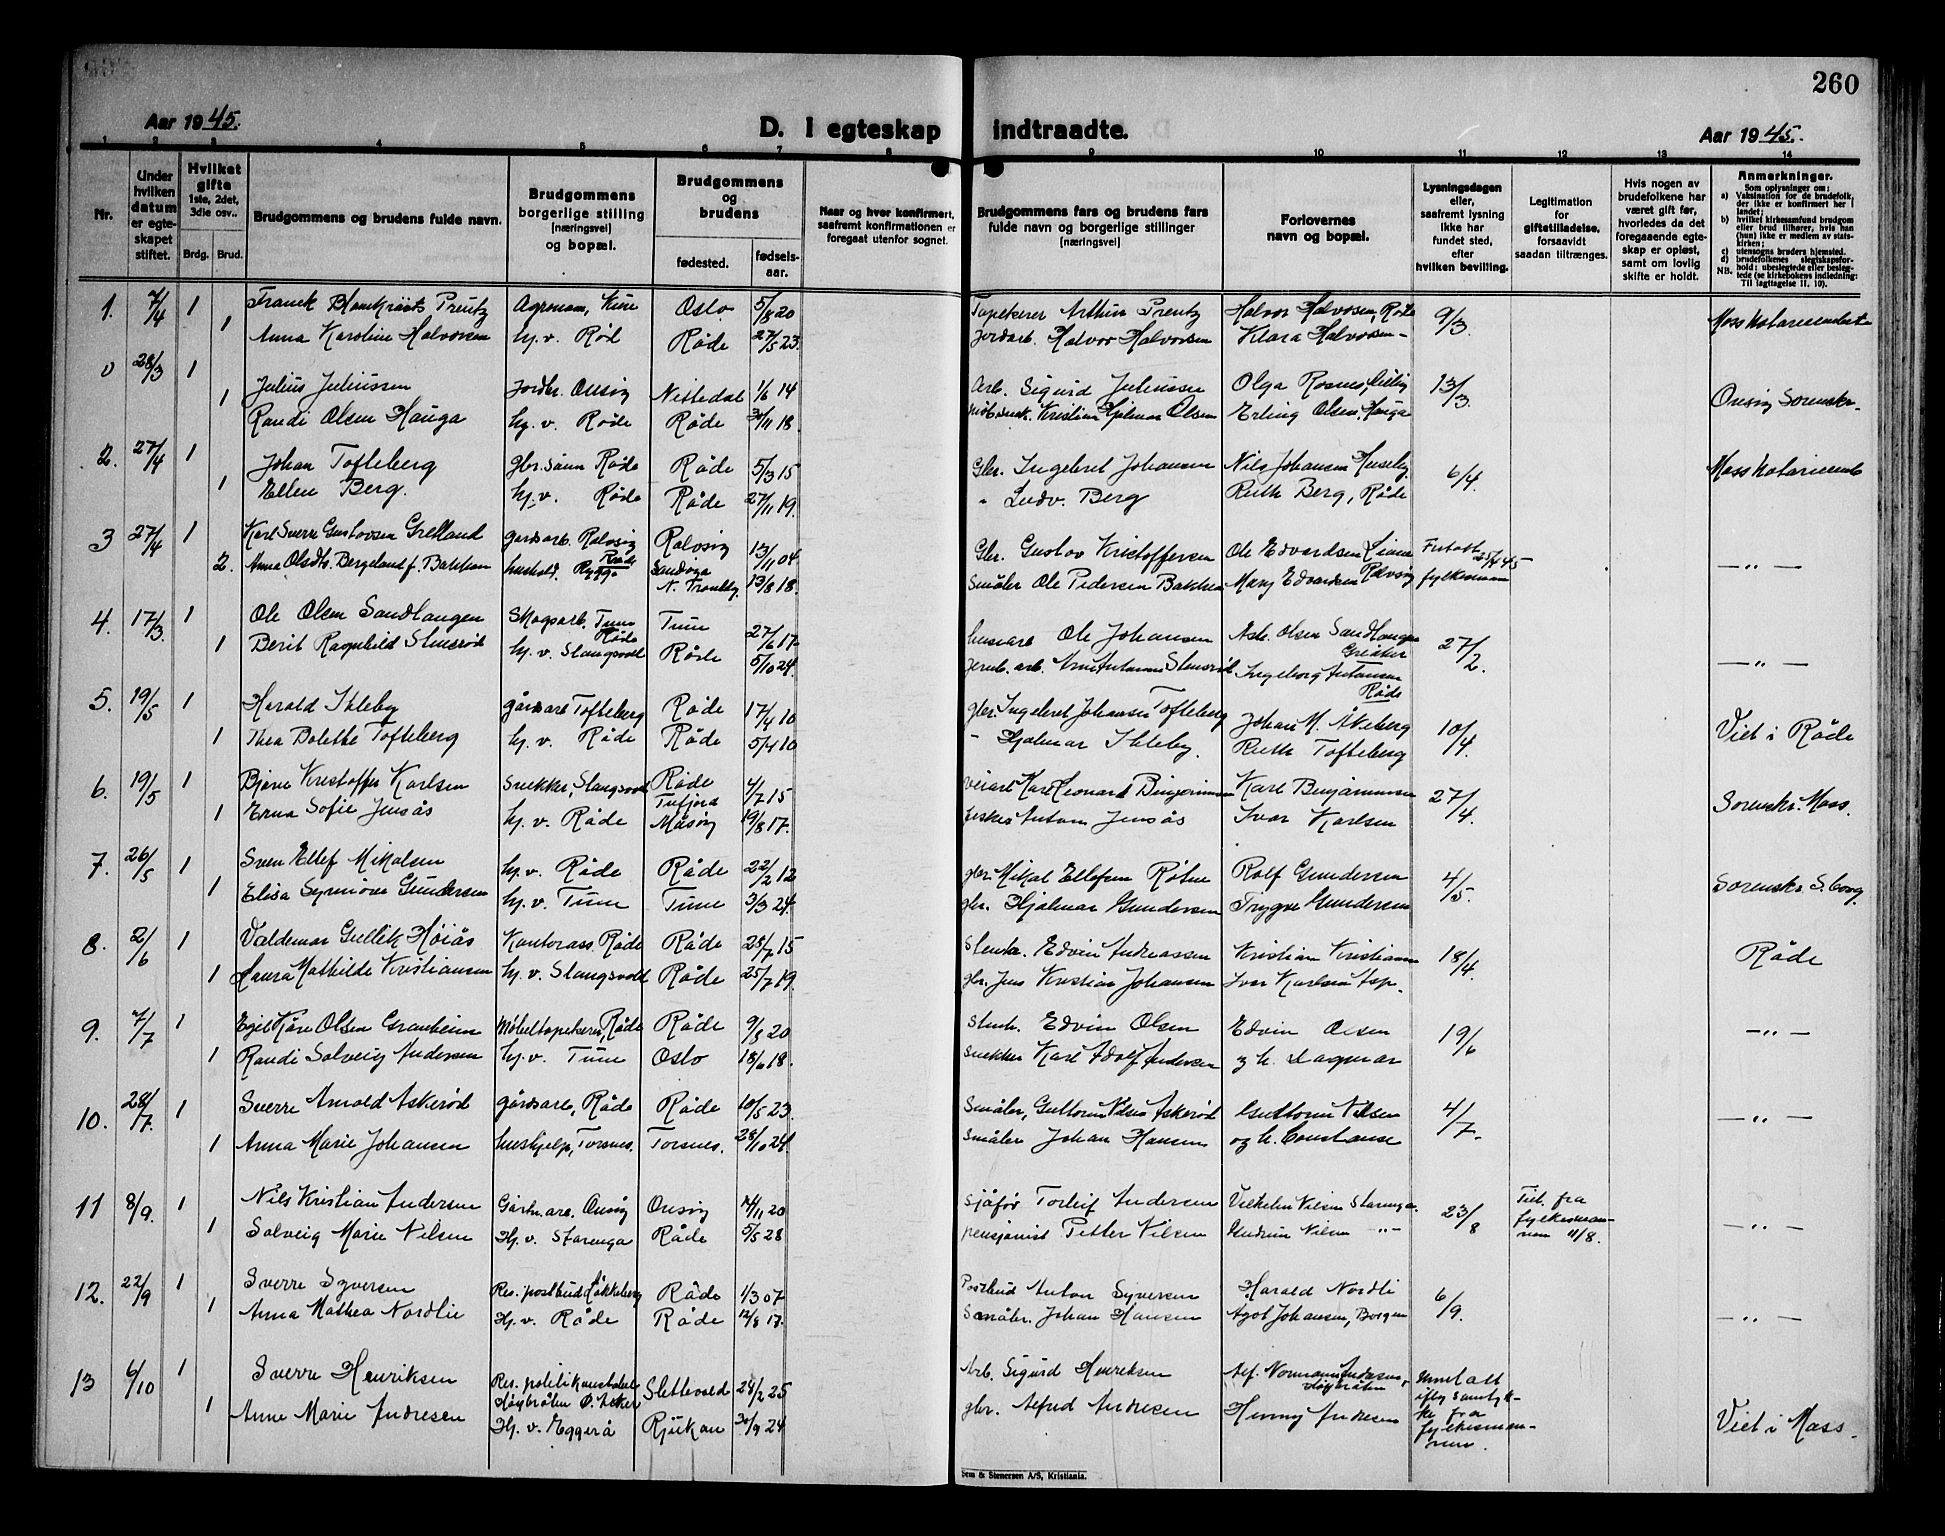 260
Aar 1945.
D. I egteskap indtraadte.
Aar 1945.
1 2 3 4 5 6 7 8 9 10 11 12 13 14
Nr.
Under hvilken datum er egteskapet stiftet.
Hvilket gifte 1ste, 2det, 3die osv..
Brdg. Brud.
Brudgommens og brudens fulde navn.
Brudgommens borgerlige stilling (næringsvei) og bopæl.
Brudgommens og brudens
fødested.
fødselsaar.
Naar og hvor konfirmert, saafremt konfirmationen er foregaat utenfor sognet.
Brudgommens fars og brudens fars fulde navn og borgerlige stillinger (næringsvei)
Forlovernes navn og bopæl.
Lysningsdagen eller, saafremt lysning ikke har fundet sted, efter hvilken bevilling.
Legitimation for giftetilladelse, forsaavidt saadan tiltrænges.
Hvis nogen av brudefolkene har været gift før, hvorledes da det foregaaende egteskap er opløst, samt om lovlig skifte er holdt.
Anmerkninger.
Som oplysninger om:
a) Vaksination for de brudefolk, der ikke er konfirmert her i landet;
b) hvilket kirkesamfund brudgom eller brud tilhører, hvis han (hun) ikke er medlem av statskirken;
c) utensogns bruders hjemsted.
d) brudefolkenes slegtskapsforhold: ubeslegtede eller beslegtede (se kirkebokens indledning: Til iagttagelse II. 10).
NB.
1. 7/4 1 Franck Prentz Agronom, Oslo 5/8 20 Tapetserer Arthur Prentz Halvor Halvorsen, Røde 9/3. Moss
1 Anna Karoline Halvorsen hj.v. Røde 27/5 23. Jordarb. Halvor Halvorsen Klara Halvorsen
0 28/3 1 Julius Juliussen Jordbr. Onsøy Nittedal 1/6 14 Arb. Sigurd Juliussen Olga 13/3. Onsøy Sorenskr.
1 Randi Olsen Hauga hj. v. Røde Råde 18. Kristian Hjalmar Olsen Erling Olsen, Hauga
2. 27/4 1 Johan Tofteberg gbr.sønn Råde Råde 5/3 15 Gbr. Ingebret Johansen Nils Johansen 6/4. Moss
1 Ellen Berg. hj.v. Råde Råde 27/11 19. " Ludv. Berg Ruth Berg, Råde
3 27/4 1 Karl Sverre Gustavsen Gretland gårdsarb. Rolvsøy Rolvsøy 13/11 04 Gbr. Gustav Kristoffersen Ole Edvardsen
2. Anna Olsdtr. Bergeland f. Bakken hushold. Rygge Råde N. 13/8 18. Småbr Ole Pedersen Bakken Mary Edvardsen Rolvsøy fylkesmann — " —
4. 17/3. 1 Ole Olsen Sandtangen Skogsarb. Tune Tune 27/6 17. Ole Johansen Ask. Olsen Sandtangen Greåker 27/2.
1 Berit Ragnhild Stensrød hj. v. Slangsvold Råde 5/10 24. Ingeborg Antonsen Råde — " —
5. 19/5 1 Harald Ikleby gårdsarb Tofteberg Råde 17/4 10 gbr. Ingebret Johansen Tofteberg Johan M. Åkeberg 10/4. Viet i Råde
1 Thea Dolethe Tofteberg hj. v. Råde Råde 5/4 10 " Hjalmar Ikleby. Ruth Tofteberg
6. 19/5 1 Bjarne Kristoffer Karlsen Snekker, Slangsvold Råde 4/7 15 veiarb Karl Leonard Karl Benjaminsen 27/4. Sorenskr. Moss.
1 Erna Sofie Jensås hj. v. Råde Tufjord Måsøy 19/8 17. fisker Anton Jensås Ivar Karlsen
7. 26/5 1 Sven Ellef Mikalsen hj.v. Råde Råde 22/2 12 gbr. Mikal Ellefsen Rolf Gundersen 4/5. Sorenskr. S.borg.
1 Elisa Synnøve Gundersen hj.v. Tune Tune 3/3 24. gbr. Hjalmar Gundersen Trygve Gundersen
8. 2/6 1 Valdemar Gullik Høiås Kontorass. Råde Råde 25/7 15 Stenh. Edvin Andreassen Kristian Kristiansen 18/4. Råde
1 Laura Mathilde Kristiansen hj.v. Slangsvold Råde 25/7 19. gbr. Jens Kristian Johansen Ivar Karlsen Asp.
9. 7/7 1 Egil Kåre Olsen Granheim Møbeltapetserer, Råde Råde 9/8 20 Stenh. Edvin Olsen Edvin Olsen 19/6 — " —
1 Randi Solveig Andersen hj.v. Tune Oslo 18/6 18. Snekker Karl Adolf Andersen og h. Dagmar
10. 28/7. 1 Sverre Arnold Askerød gårdsarb, Råde Råde 10/5 23. Småbr, Guttorm Nilsen Askerød Guttorm Nilsen 4/7. — " —
1 Anna Marie Johansen hushjelp, Torsnes. Torsnes. 28/10 24. Småbr Johan Hansen og h. Constanse
11 8/9. 1 Nils Kristian Andersen Gartn. arb. Onsøy Onsøy 20 Sjåfør Torleif Andersen Vilhelm Nilsen Starenga. 23/8 Till. fra fylkesmannen 11/8.
1 Solveig Marie Nilsen Hj. v. Starenga Råde 5/5 28 pensjonist Petter Nilsen Gudrun Nilsen " — " —
12. 22/9 1 Sverre Syversen Res. postbud Løkkeberg Råde 1/3 07 Postbud Anton Syversen Harald Nordli 6/9.
1 Anna Mathea Nordlie Hj. v. Råde Råde 12/8 17. Småbr. Johan Hansen Agot Johansen, Borgen — " —
13 6/10 1 Sverre Henriksen Res. politikonstabel Høybråten Ø. Aker Slettevold 24/2 25 Arb. Sigurd Henriksen Alf. Normann Andersen, Høybråten
1 Anne Marie Andresen Hj. v. Eggerå Rjukan 30/9 24 gbr. Alfred Andresen Henny Andresen Unnlatt iflg samtykke fra fylkesmannen. Viet i Moss.
Sem & Stenersen A/S, Kristiania.